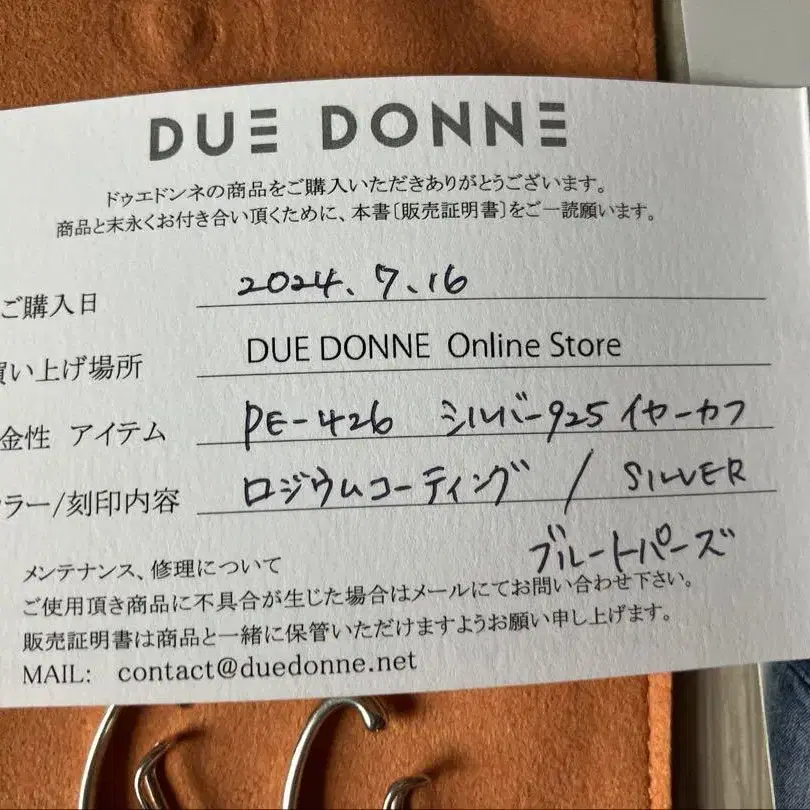 DUE DONNE
ドゥエドンネの商品をご購入いただきありがとうございます。
商品と末永くお付き合い頂くために、本書〔販売証明書〕をご一読願います。
ご購入日 2024.7.16
買い上げ場所 DUE DONNE Online Store
金性 アイテム PE-426 シルバー925 イヤーカフ
ラー/刻印内容 ロジウムコーティング / SILVER
ブルートパーズ
メンテナンス、修理について
ご使用頂き商品に不具合が生じた場合はメールにてお問い合わせ下さい。
販売証明書は商品と一緒に保管いただけますようお願い申し上げます。
MAIL: contact@duedonne.net